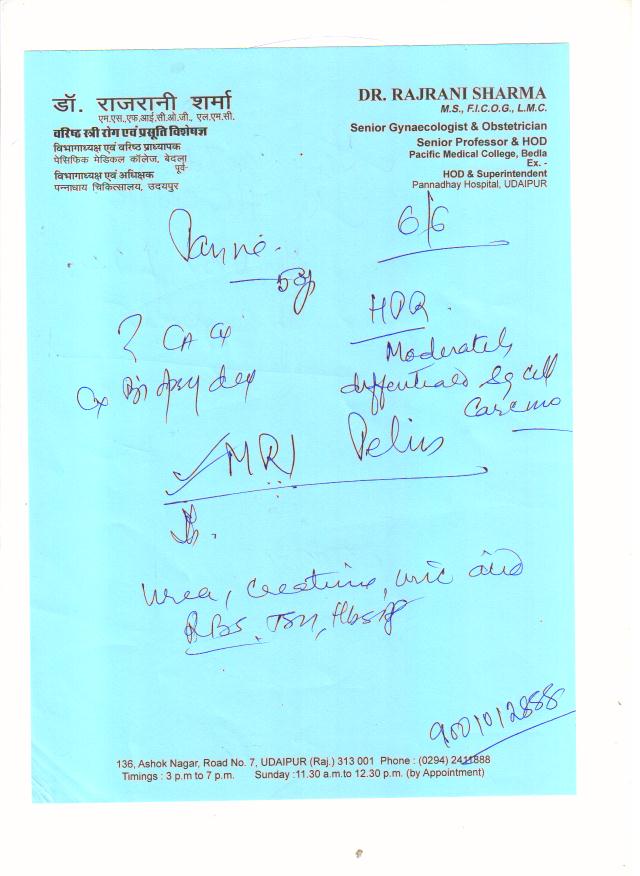 डॉ. राजरानी शर्मा
एम.एस.,एफ.आई.सी.ओ.जी., एल.एम.सी.
वरिष्ठ स्त्री रोग एवं प्रसूति विशेषज्ञ
विभागाध्यक्ष एवं वरिष्ठ प्राध्यापक
पेसिफिक मेडिकल कॉलेज, बेदला
पूर्व-
विभागाध्यक्ष एवं अधिक्षक
पन्नाधाय चिकित्सालय, उदयपुर
DR. RAJRANI SHARMA
M.S., F.I.C.O.G., L.M.C.
Senior Gynaecologist & Obstetrician
Senior Professor & HOD
Pacific Medical College, Bedla
Ex. -
HOD & Superintendent
Pannadhay Hospital, UDAIPUR
6/6
? CA Cx
Cx Biopsy
HPR
Moderately
differentiated Sq Cell
MRI Pelvis
Urea, Creatinine, uric acid
RBS, TSH, HbsAg
9001012888
136, Ashok Nagar, Road No. 7, UDAIPUR (Raj.) 313 001 Phone : (0294) 2411888
Timings : 3 p.m to 7 p.m. Sunday :11.30 a.m.to 12.30 p.m. (by Appointment)